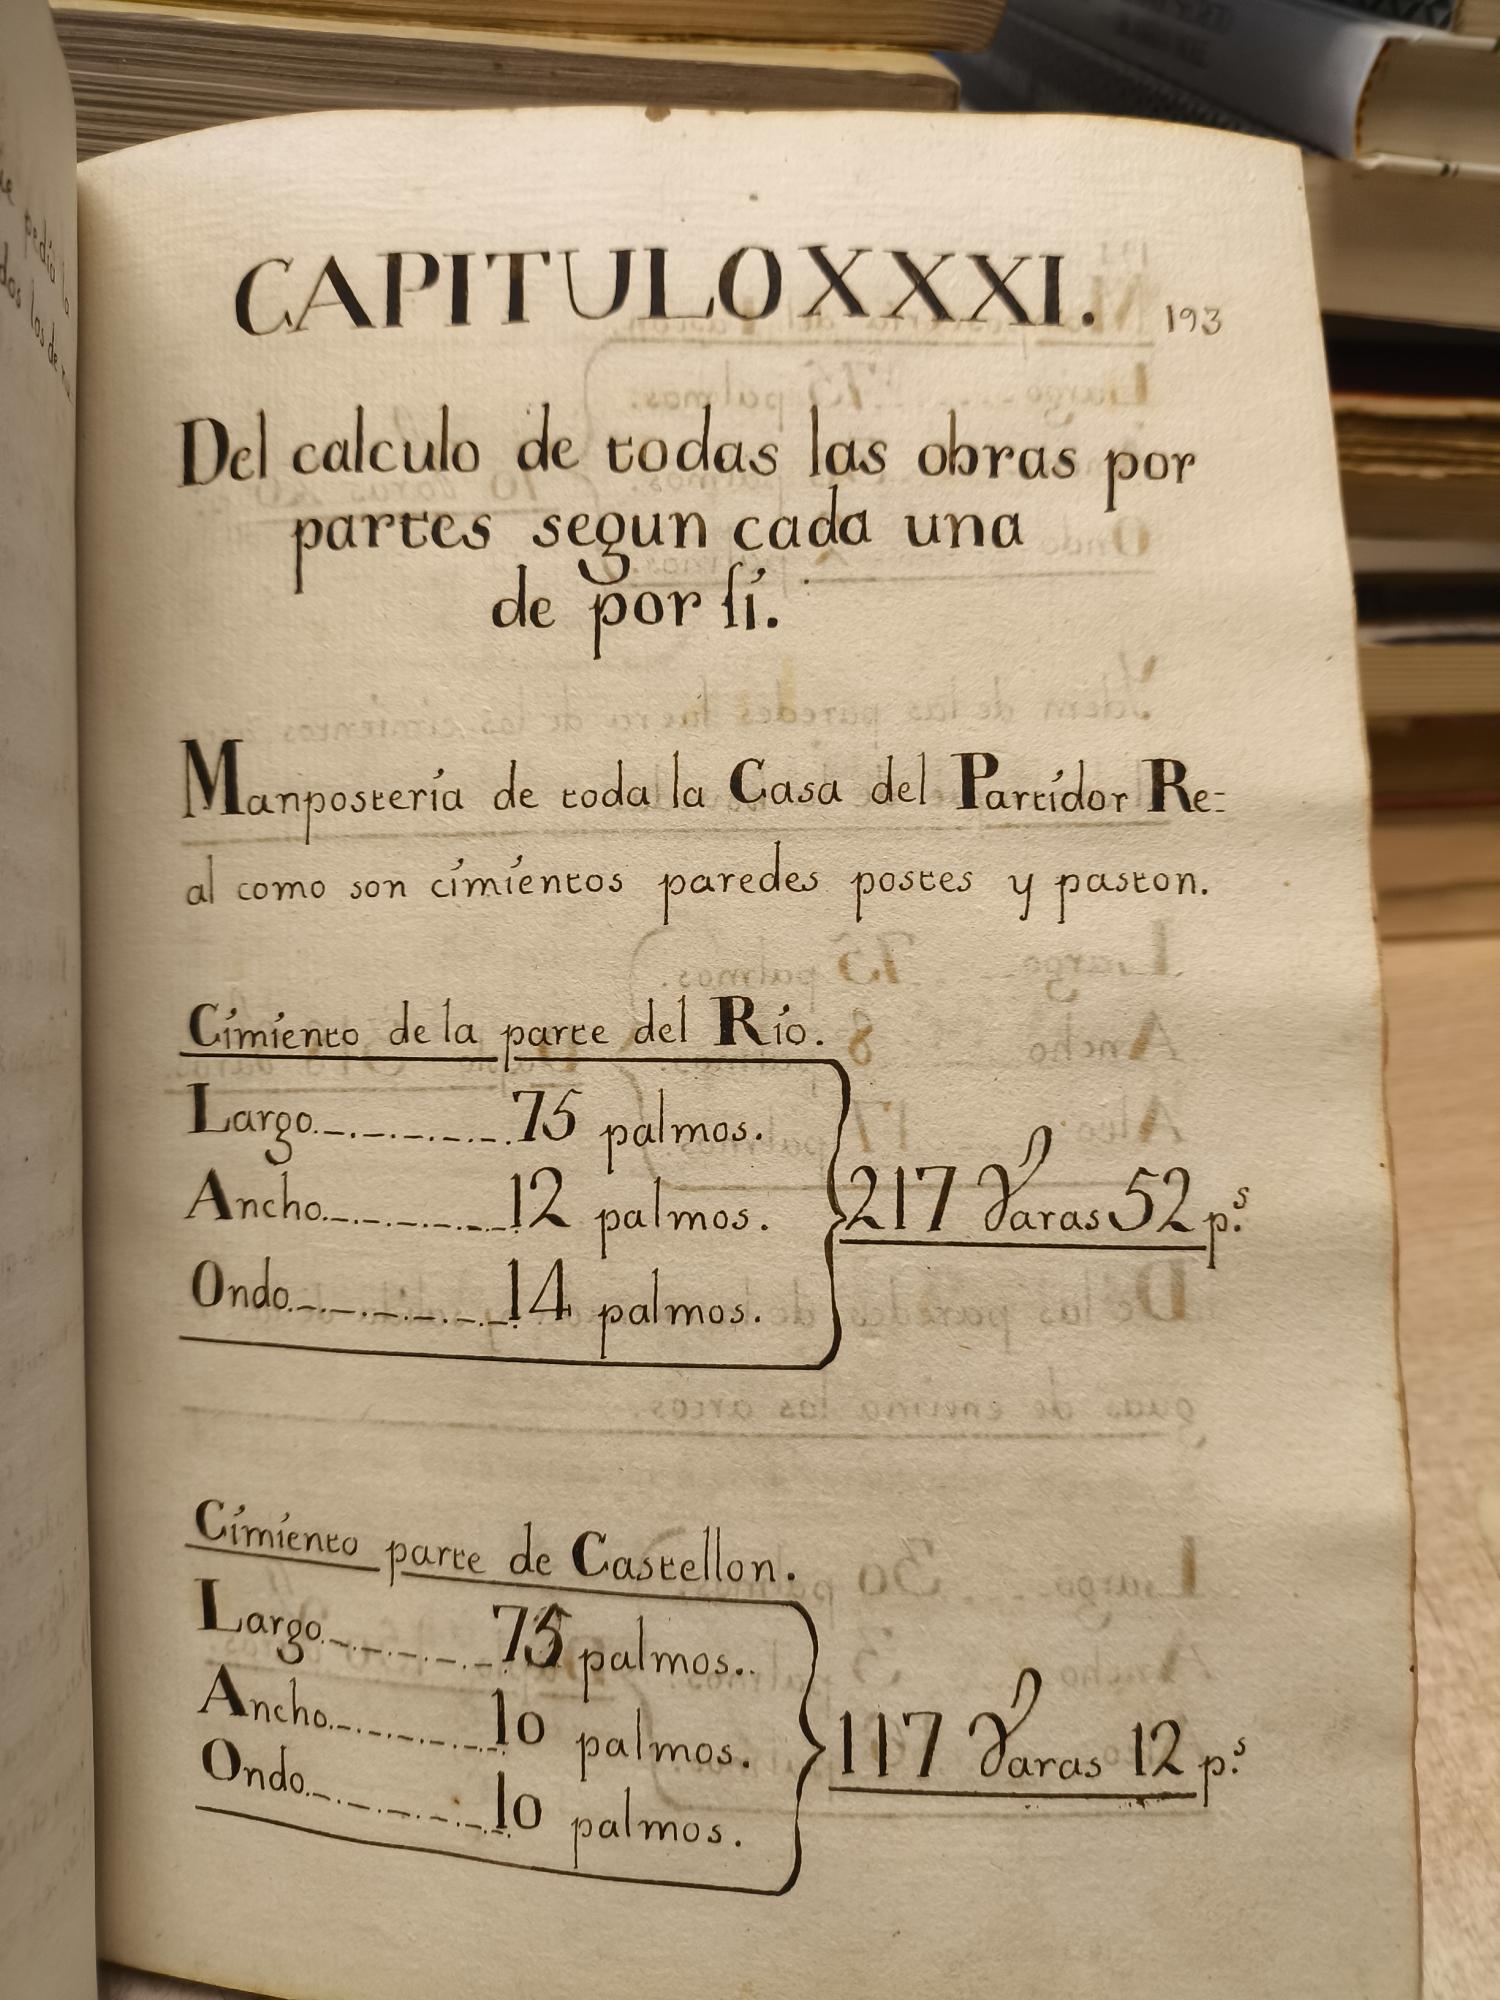 CAPITULO XXXI.
193
Del calculo de todas las obras por
partes segun cada una
de por ſí.
Manpostería de toda la Casa del Partidor Re=
al como son címíentos paredes postes y paston.
Címíento de la parte del Río.
Largo 75 palmos.
Ancho 12 palmos.
Ondo 14 palmos.
217 Varas 52 p.s
Címíento parte de Castellon.
Largo 75 palmos.
Ancho 10 palmos.
Ondo 10 palmos.
117 Varas 12 p.s